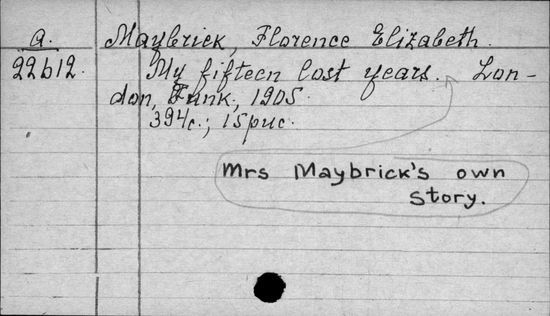 a. Maybrick, Florence Elizabeth.
22612. My fifteen lost years. Lon-
don, Funk, 1905.
394c.; 15рис.
Mrs Maybrick's own
story.